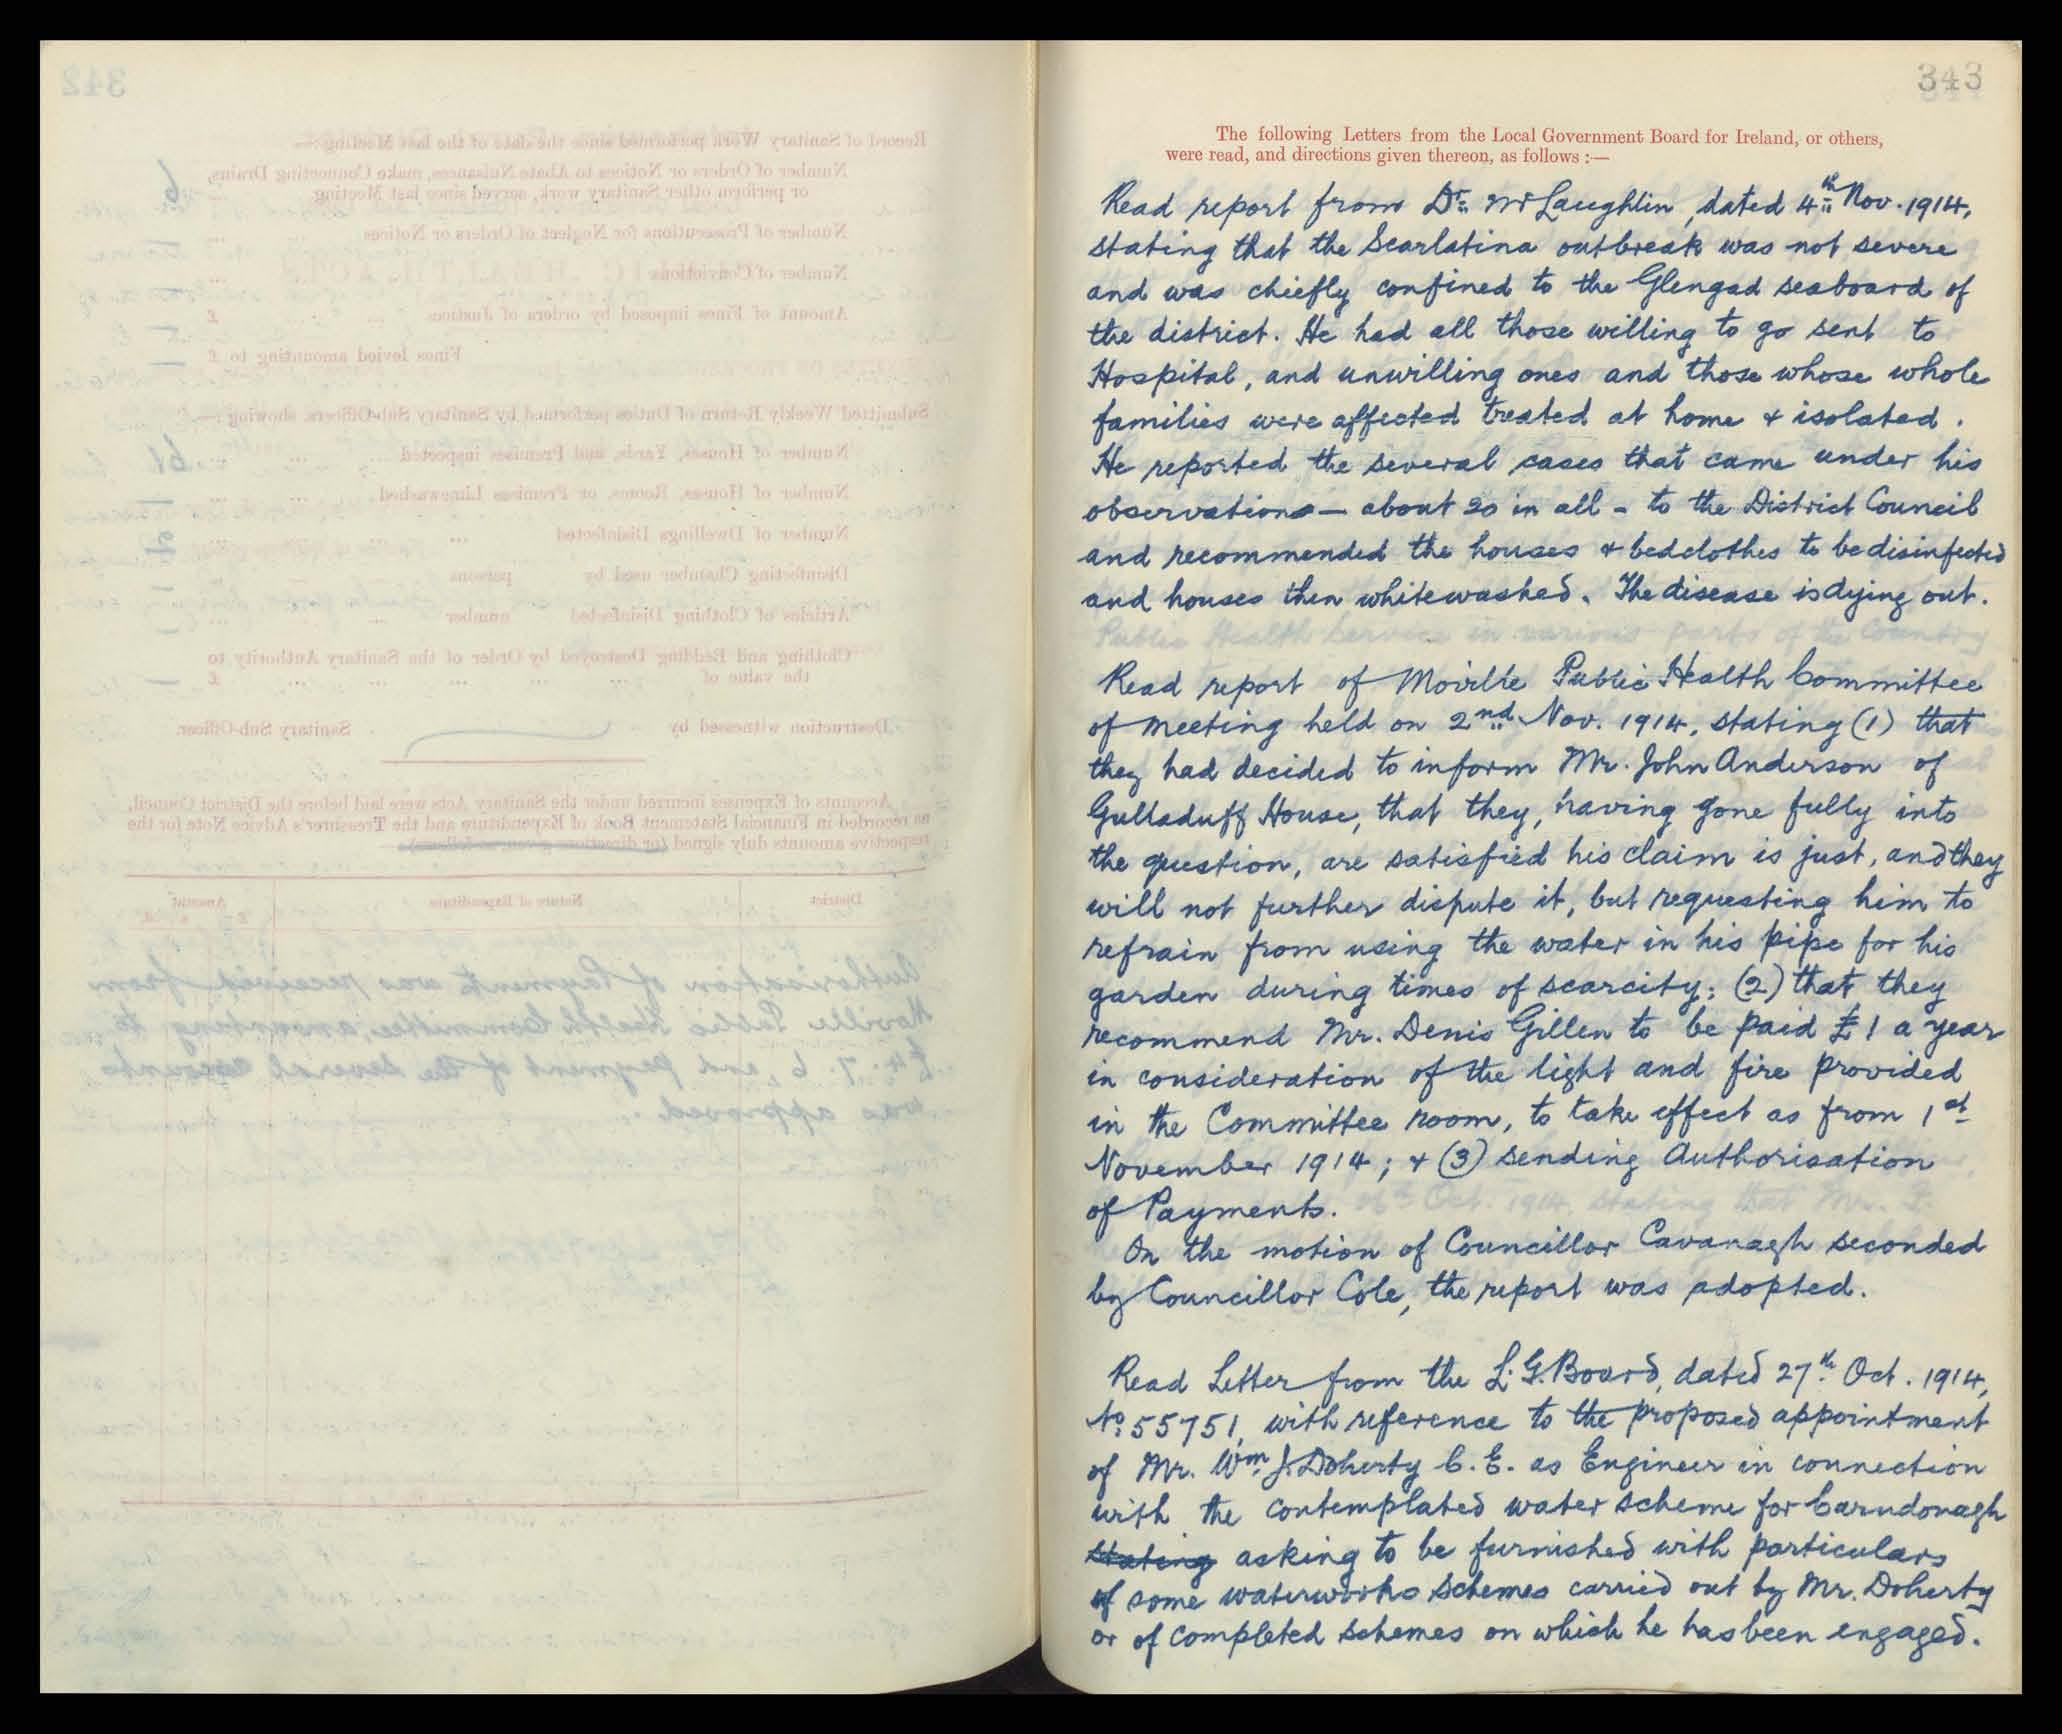 343
The following Letters from the Local Government Board for Ireland, or others,
were read, and directions given thereon, as follows :—
Read report from Dr. McLaughlin, dated 4th Nov. 1914,
stating that the Scarlatina outbreak was not severe
and was chiefly confined to the Glengad seaboard of
the district. He had all those willing to go sent to
Hospital, and unwilling ones and those whose whole
families were affected treated at home & isolated.
He reported the several cases that came under his
observation — about 20 in all - to the District Council
and recommended the houses & bedclothes to be disinfected
and houses then whitewashed. The disease is dying out.
Read report of Moville Public Health Committee
of meeting held on 2nd Nov. 1914, stating (1) that
they had decided to inform Mr. John Anderson of
Gulladuff House, that they, having gone fully into
the question, are satisfied his claim is just, and they
will not further dispute it, but requesting him to
refrain from using the water in his pipe for his
garden during times of scarcity; (2) that they
recommend Mr. Denis Gillen to be paid £1 a year
in consideration of the light and fire provided
in the Committee room, to take effect as from 1st
November 1914; & (3) sending Authorisation
of Payments.
On the motion of Councillor Cavanagh seconded
by Councillor Cole, the report was adopted.
Read Letter from the L. G. Board, dated 27th Oct. 1914,
No. 55751, with reference to the proposed appointment
of Mr. Wm. J. Doherty C. E. as Engineer in connection
with the contemplated water scheme for Carndonagh
stating asking to be furnished with particulars
of some waterworks schemes carried out by Mr. Doherty
or of completed schemes on which he has been engaged.